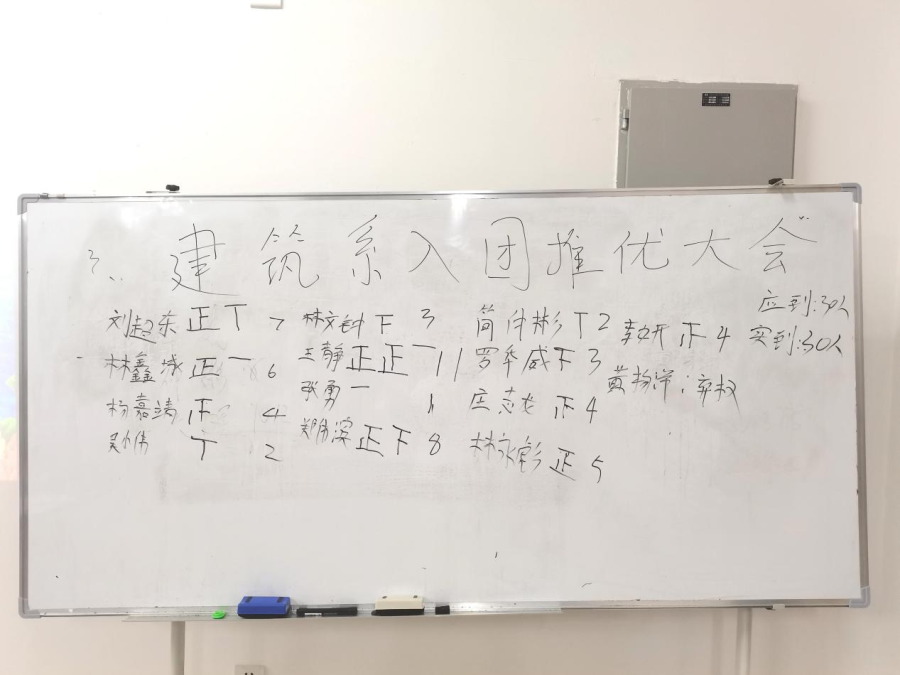 建筑系入团推优大会
应到:30人
刘起东 正丅 7 林文钟 下 3 简伟彬 丅 2 李妍 正 4
实到:30人
林鑫 正一 6 王静 正正一 11 罗华威 下 3
杨嘉涛 正 4 张勇 一 1 庄志龙 正 4 黄杨洋:弃权
吴伟 丅 2 郑伟 正下 8 林永彬 正 5